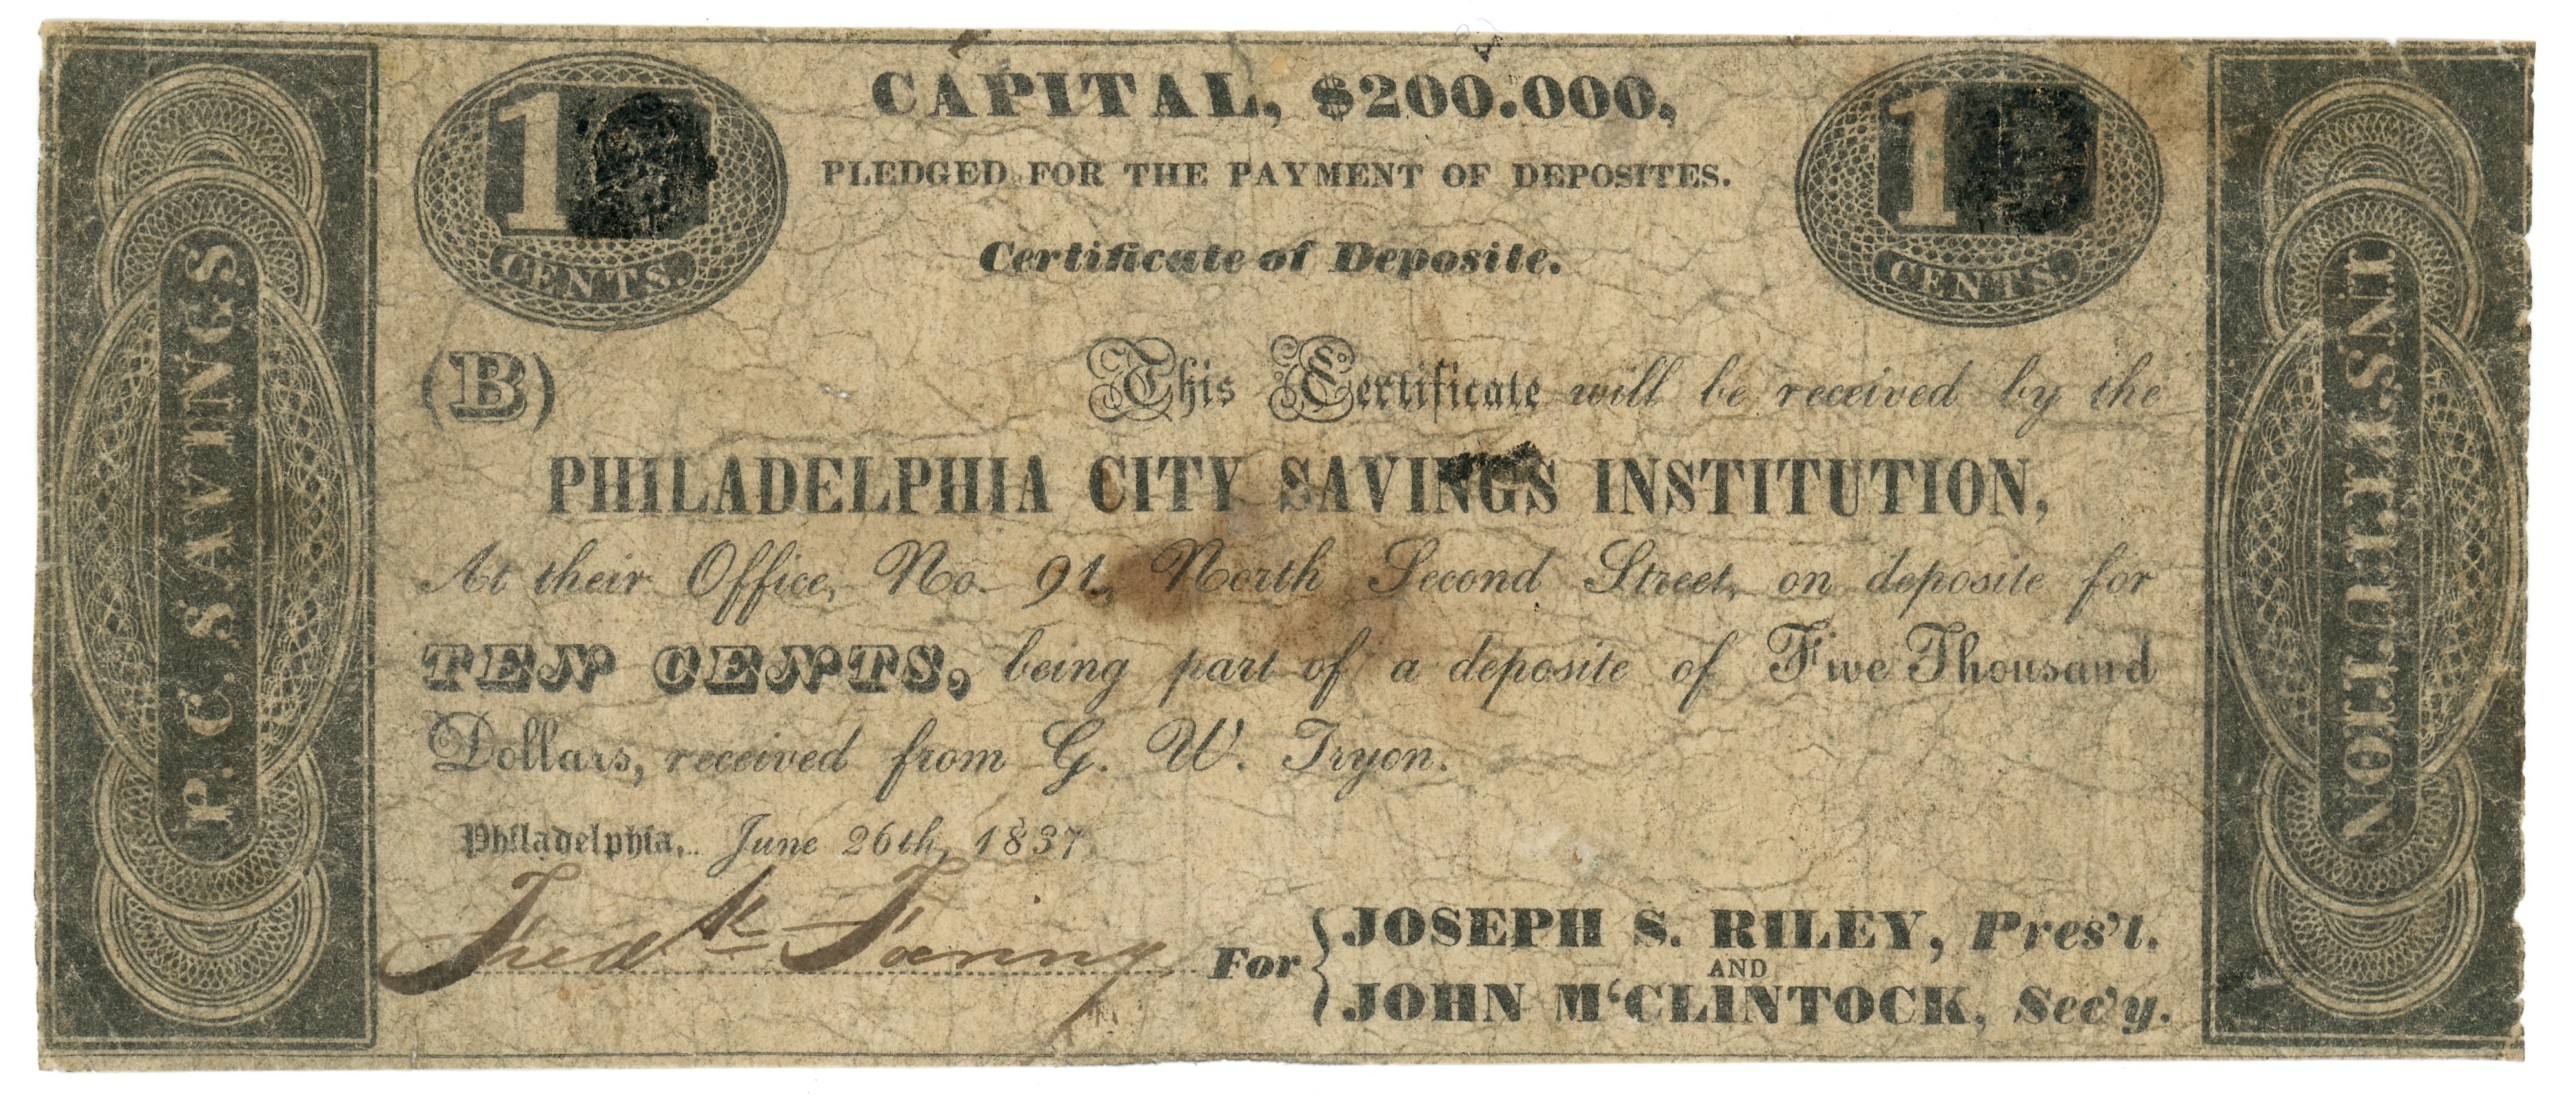 CAPITAL, $200.000,
PLEDGED FOR THE PAYMENT OF DEPOSITES.
Certificate of Deposite.
1
CENTS.
1
CENTS.
P. C. SAVINGS
INSTITUTION
(B)
This Certificate will be received by the
PHILADELPHIA CITY SAVINGS INSTITUTION,
At their Office, No. 91, North Second Street, on deposite for
TEN CENTS, being part of a deposite of Five Thousand
Dollars, received from G. W. Tryon.
Philadelphia, June 26th, 1837.
Fredk
For
JOSEPH S. RILEY, Pres't.
AND
JOHN M'CLINTOCK, Sec'y.